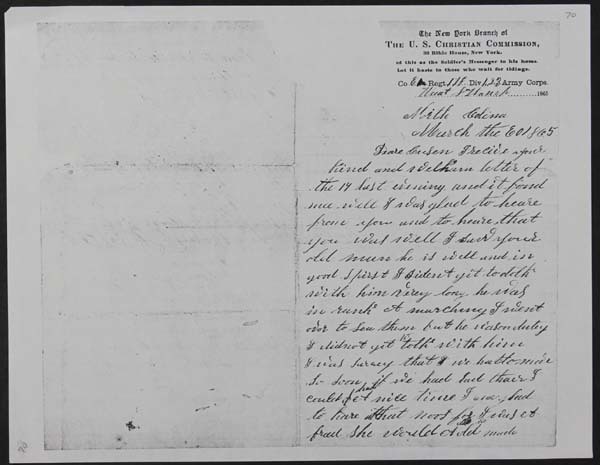 70
The New York Branch of
THE U. S. CHRISTIAN COMMISSION,
30 Bible House, New York.
of this as the Soldier's Messenger to his home.
Let it hasten to those who wait for tidings.
Co Regt 118 Div 1 23 Army Corps.
1865
March the
Deare Cusen I recive your
kind and welkam letter of
the 14 last evening and it fond
me well I was glad to heare
from you and to heare that
you was well I saw your
old mun he is well and in
good spirit I dident git to tolk
with him verey long he was
in rank A marching I went
over to see them but he was on duty
I did not git to tolk with him
I was surrey that we had to move
so soon if we had laid thare I
could nice time I was glad
to hare that noos for I was A
fraid she would